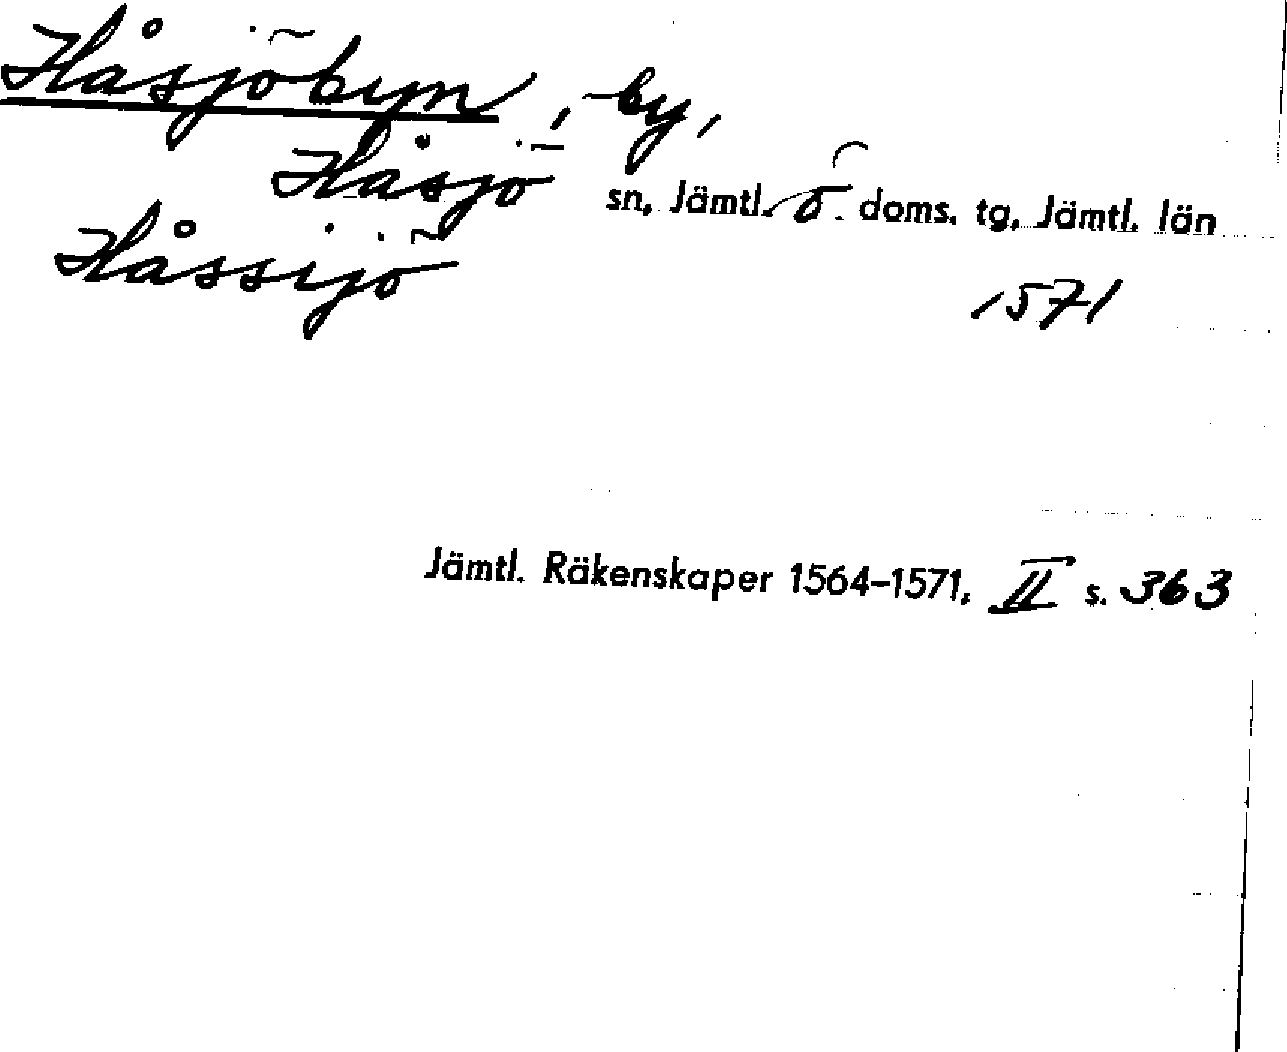 Håsjöbyn, by,
Håsjö sn, Jämtl. ö. doms. tg, Jämtl. län
Håssijö 1571
Jämtl. Räkenskaper 1564–1571, II s. 363